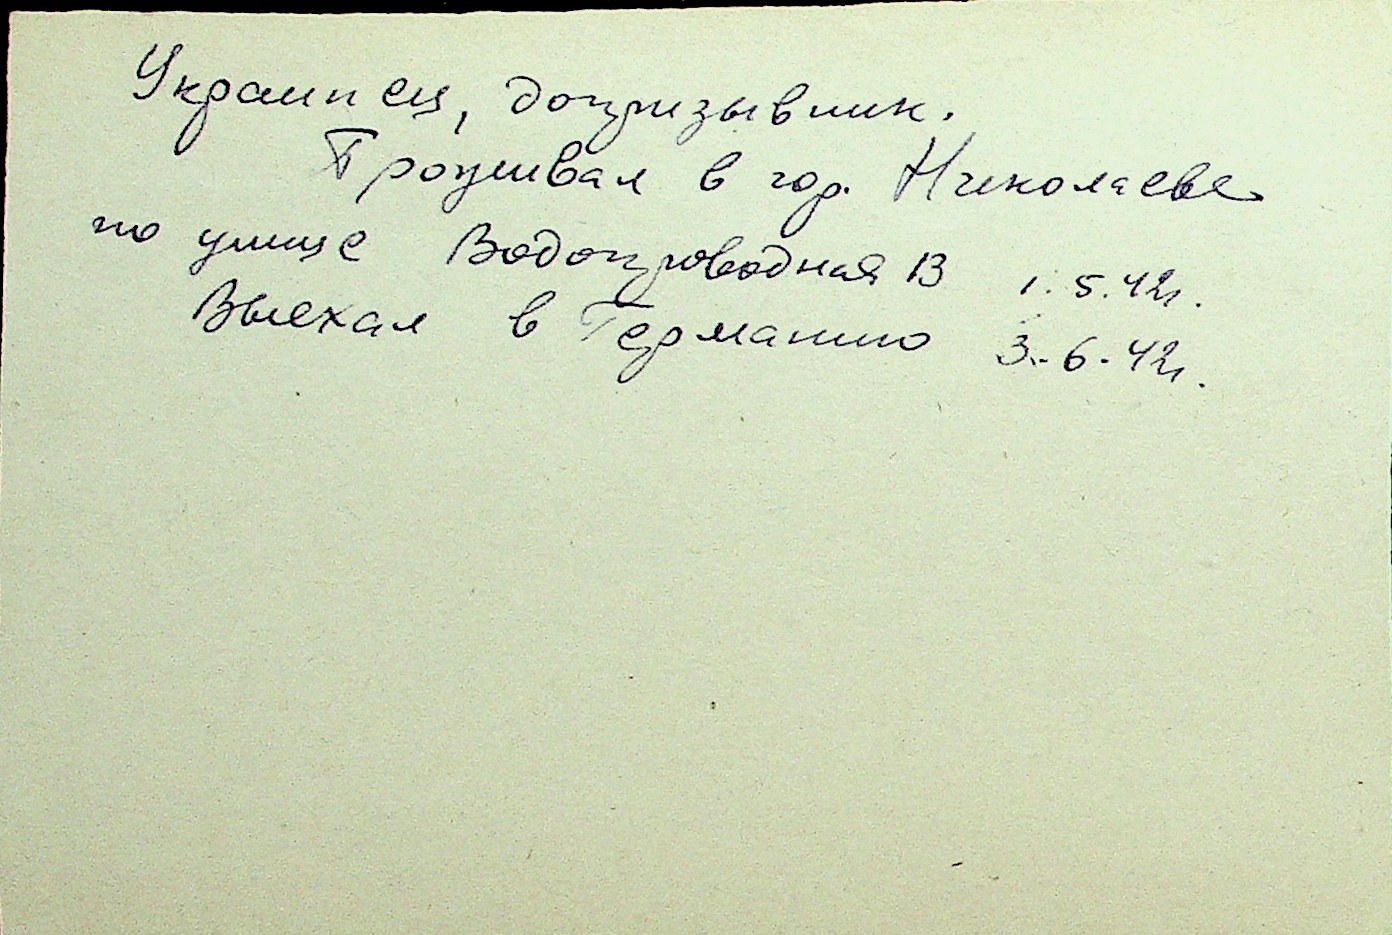 Украинец, допризывник.
Проживал в гор. Николаеве
по улице Водопроводная 13 1.5.42г.
Выехал в Германию 3.-6.-42г.